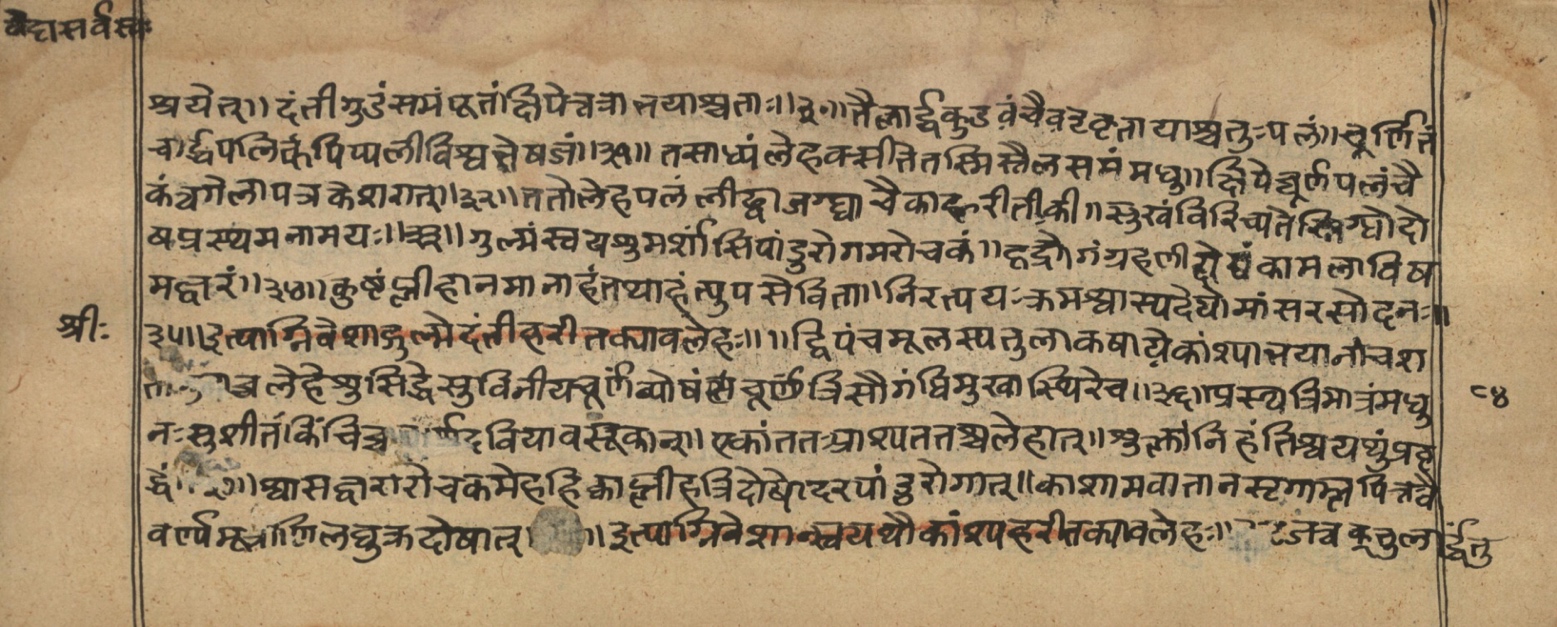 वैद्यसर्वस्वः
श्रयेत्॥ दंतीगुडंसमंपूतांक्षिपेत्तत्रातयाश्चताः॥३०॥तैलार्द्धकुडवंचैवत्रृवृतायाश्चतुःपलं॥चूर्णितं
चार्द्धपलिकंपिप्पलीविश्वभेषजं॥३१॥ तत्साध्यंलेहवत्सीतेतस्मिंस्तैलसमंमधु॥क्षिपेच्चूर्णपलंचै
कंत्वगैलापत्रकेशरात्॥३२॥ततोलेहपलंलीढ्वाजग्ध्वाचैकाहरीतीकी॥सुखंविरिच्यतेस्निग्धोदो
षप्रस्थमनामयः॥३३॥गुल्मंस्वयथुमर्शांसिपांडुरोगमरोचकं॥हृद्रोगंग्रहणीदोषंकामलाविष
मद्वारं॥३४॥कुष्टंप्लीहानमानाहंतथाहंत्युपसेविता॥निरत्ययःक्रमश्चास्यदेयोमांसरसोदनः॥
श्रीः
३५॥इत्याग्निवेशाद्गुल्मेदंतीहरीतक्यावलेहः॥॥द्विपंचमूलस्यतुलाकषायेकांश्यातयानांचश
लेहेशुसिद्धेसुविनीयचूर्णंव्योषंसचूर्णंत्रिसौगंधिमुखास्थिरेच॥३६॥प्रस्थत्रिमात्रंमधु
८४
नःसुशीतंकिंचिच्च दवियावसूकात्॥एकांततःप्राश्यततश्चलेहात्॥शुक्तांनिहंतिश्वयथुंप्रवृ
द्धं ॥श्वासद्वारारोचकमेहहिक्काप्लीहत्रिदोषोदरपांडुरोगात्॥काशामवातानसृगाम्लपित्तंवै
वर्ण्यमूत्रानिलशुक्रदोषात् ॥इत्याग्निवेशात्स्वयथौकांश्यहरीतक्यावलेहः॥